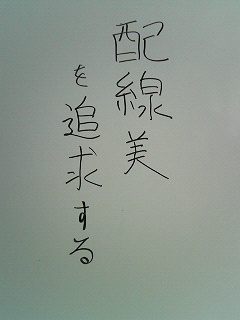 配線美
を追求する